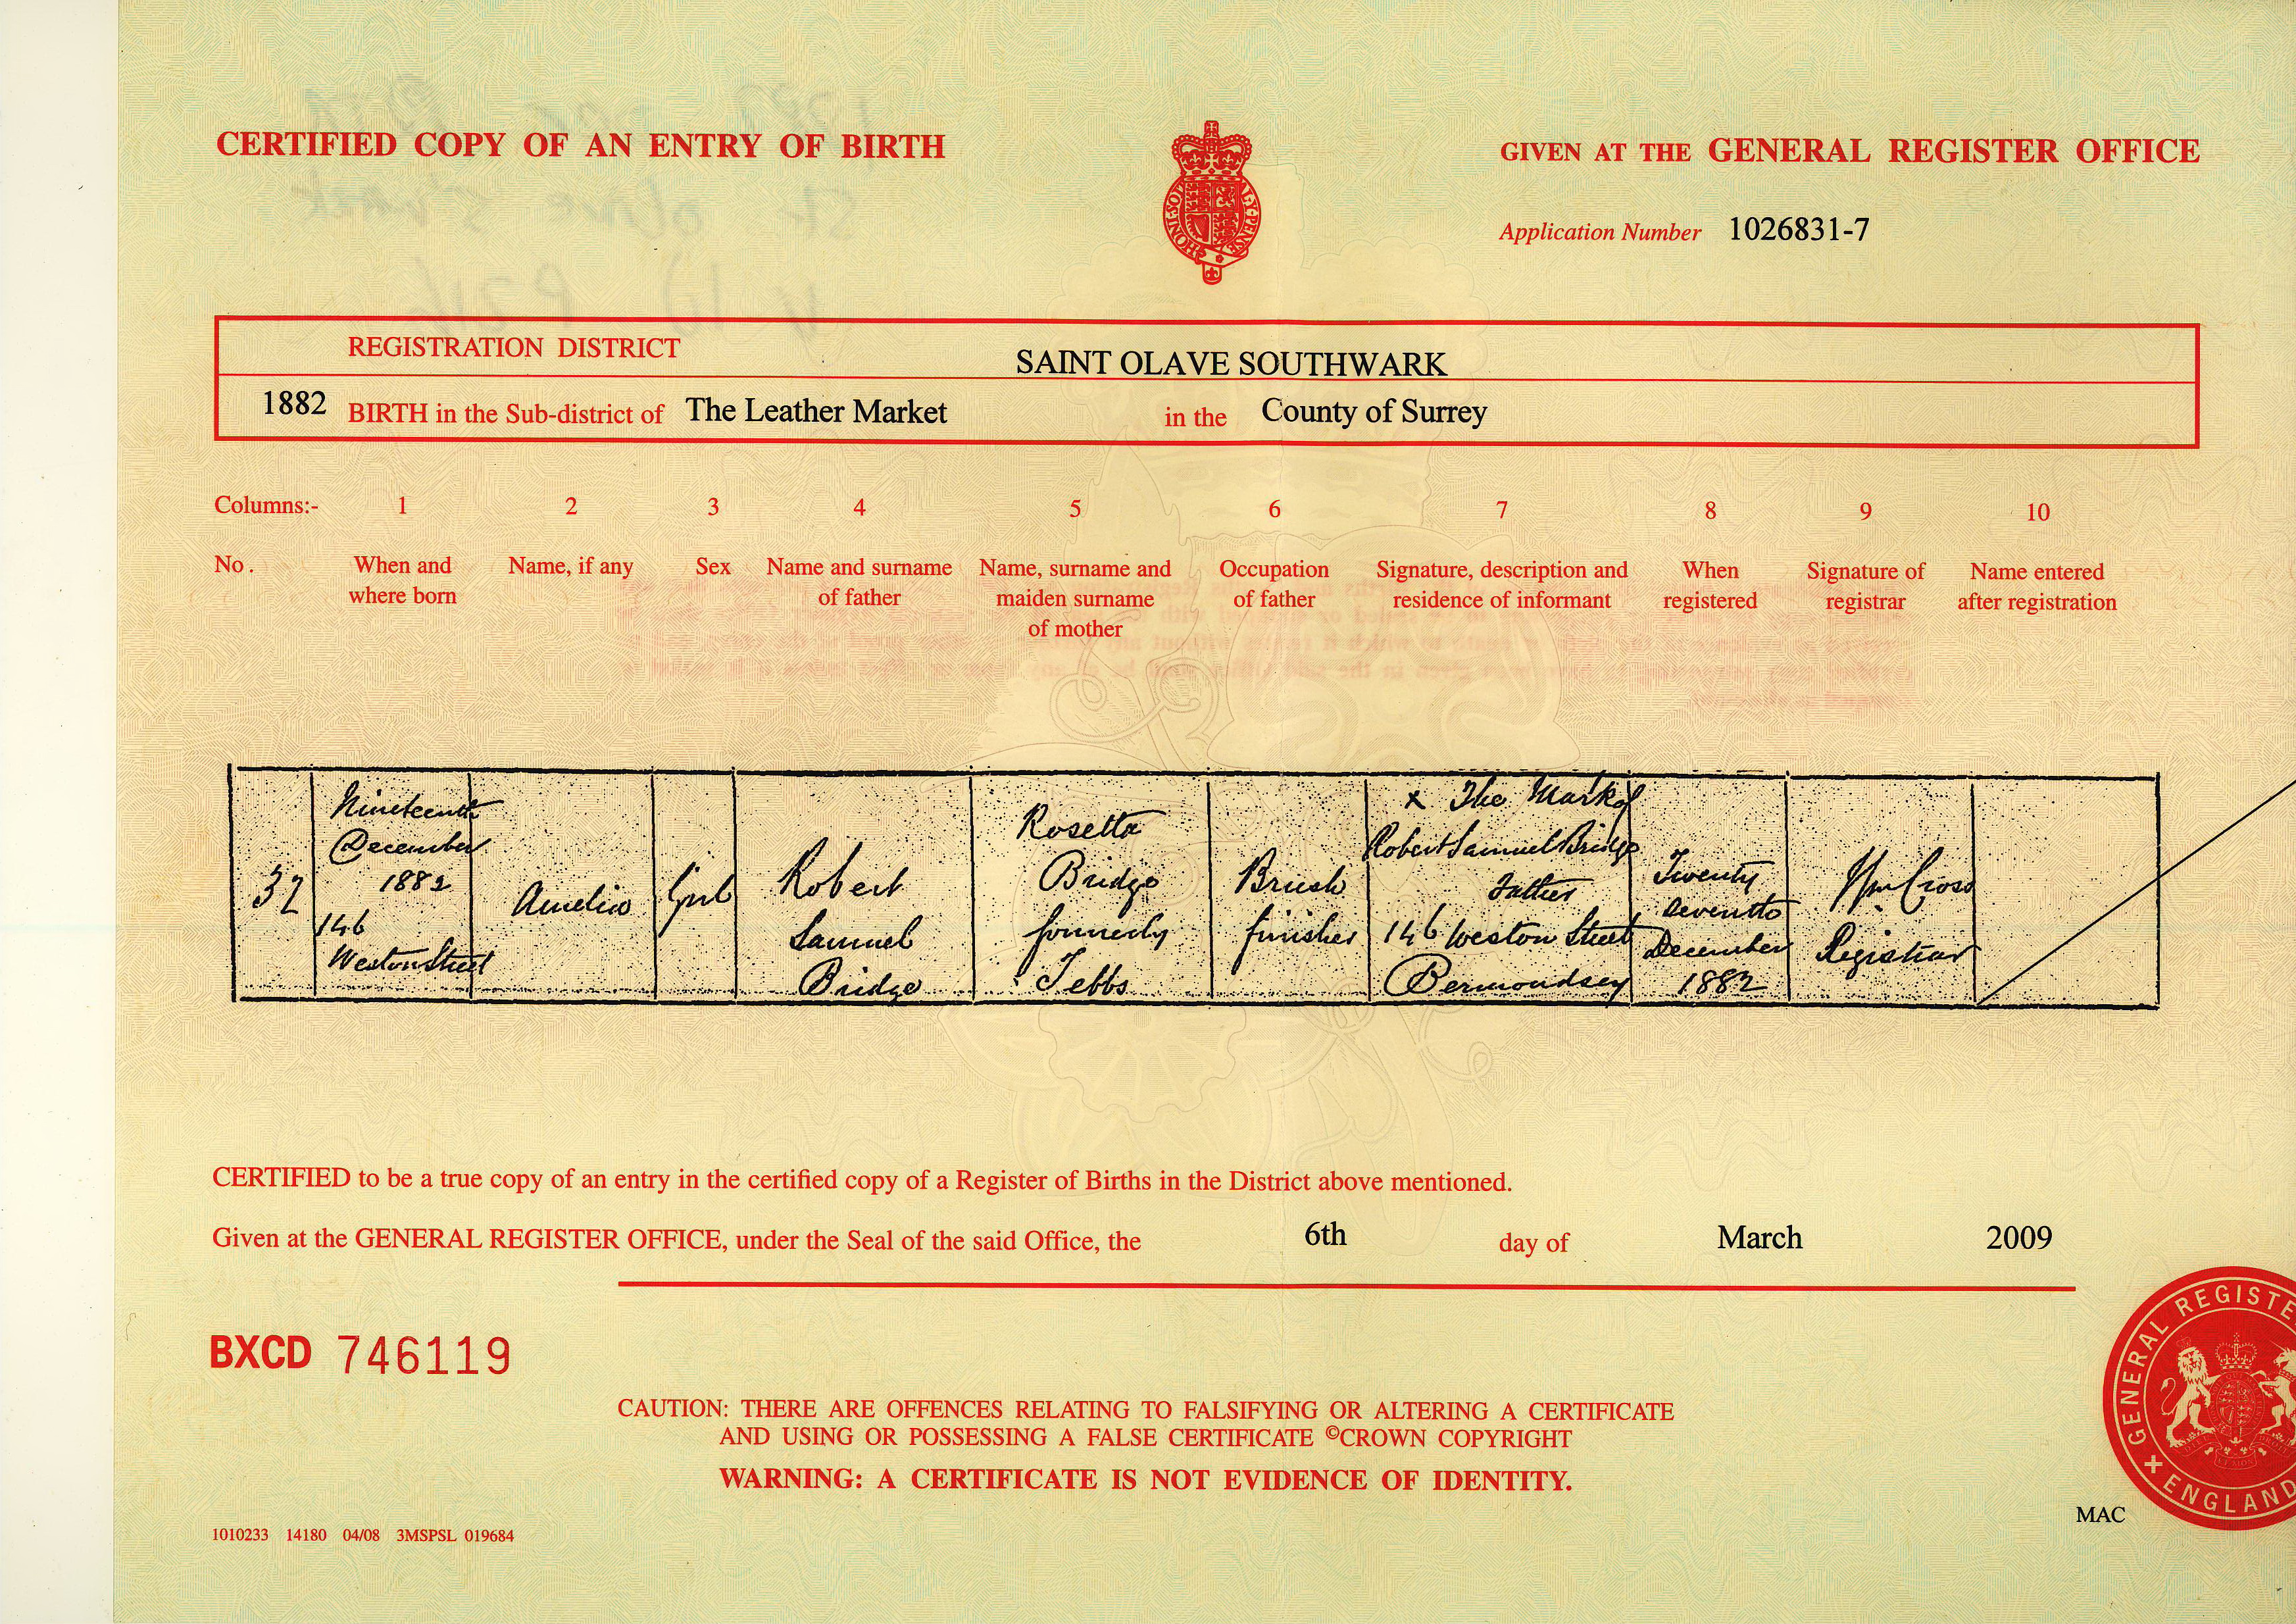 CERTIFIED COPY OF AN ENTRY OF BIRTH
GIVEN AT THE GENERAL REGISTER OFFICE
Application Number 1026831-7
REGISTRATION DISTRICT SAINT OLAVE SOUTHWARK
1882 BIRTH in the Sub-district of The Leather Market in the County of Surrey
Columns:- 1 2 3 4 5 6 7 8 9 10
No. When and where born
Name, if any
Sex
Name and surname of father
Name, surname and maiden surname of mother
Occupation of father
Signature, description and residence of informant
When registered
Signature of registrar
Name entered after registration
32
Nineteenth
December
1882
146
Weston Street
Amelia
Girl
Robert
Samuel
Bridge
Rosetta
Bridge
formerly
Tebbs
Brush
finisher
x The Mark of
Robert Samuel Bridge
Father
146 Weston Street
Bermondsey
Twenty
seventh
December
1882
Wm Cross
Registrar
CERTIFIED to be a true copy of an entry in the certified copy of a Register of Births in the District above mentioned.
Given at the GENERAL REGISTER OFFICE, under the Seal of the said Office, the 6th day of March 2009
BXCD 746119
CAUTION: THERE ARE OFFENCES RELATING TO FALSIFYING OR ALTERING A CERTIFICATE
AND USING OR POSSESSING A FALSE CERTIFICATE ©CROWN COPYRIGHT
WARNING: A CERTIFICATE IS NOT EVIDENCE OF IDENTITY.
GENERAL REGISTE
ENGLAND
MAC
1010233 14180 04/08 3MSPSL 019684